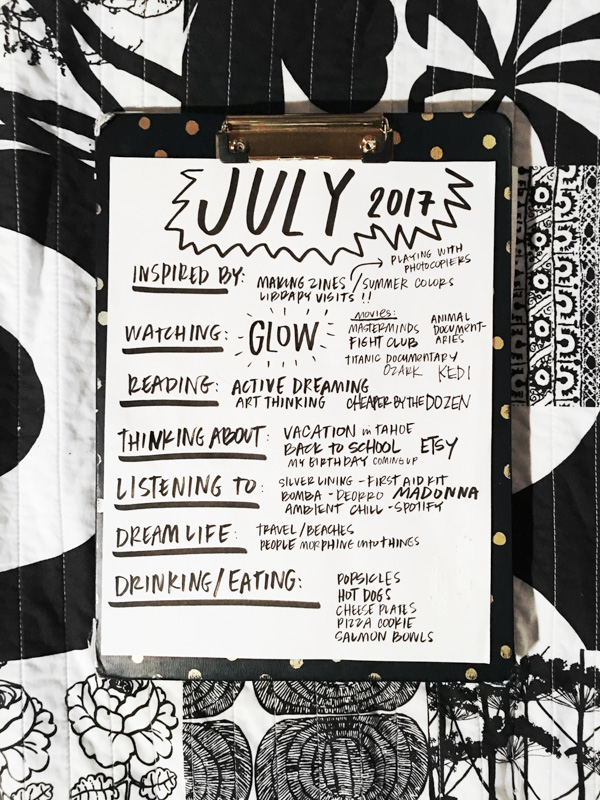 JULY 2017
PLAYING WITH
PHOTOCOPIERS
INSPIRED BY: MAKING ZINES / SUMMER COLORS
LIBRARY VISITS !!
WATCHING: GLOW
MOVIES:
MASTERMINDS
FIGHT CLUB
ANIMAL
DOCUMENT-
ARIES
TITANIC DOCUMENTARY
OZARK KEDI
READING: ACTIVE DREAMING
ART THINKING CHEAPER BY THE DOZEN
THINKING ABOUT: VACATION in TAHOE
BACK TO SCHOOL ETSY
MY BIRTHDAY COMING UP
LISTENING TO: SILVER LINING - FIRST AID KIT
BOMBA - DEORRO MADONNA
AMBIENT CHILL - SPOTIFY
DREAM LIFE: TRAVEL / BEACHES
PEOPLE MORPHING into THINGS
DRINKING / EATING: POPSICLES
HOT DOGS
CHEESE PLATES
PIZZA COOKIE
SALMON BOWLS